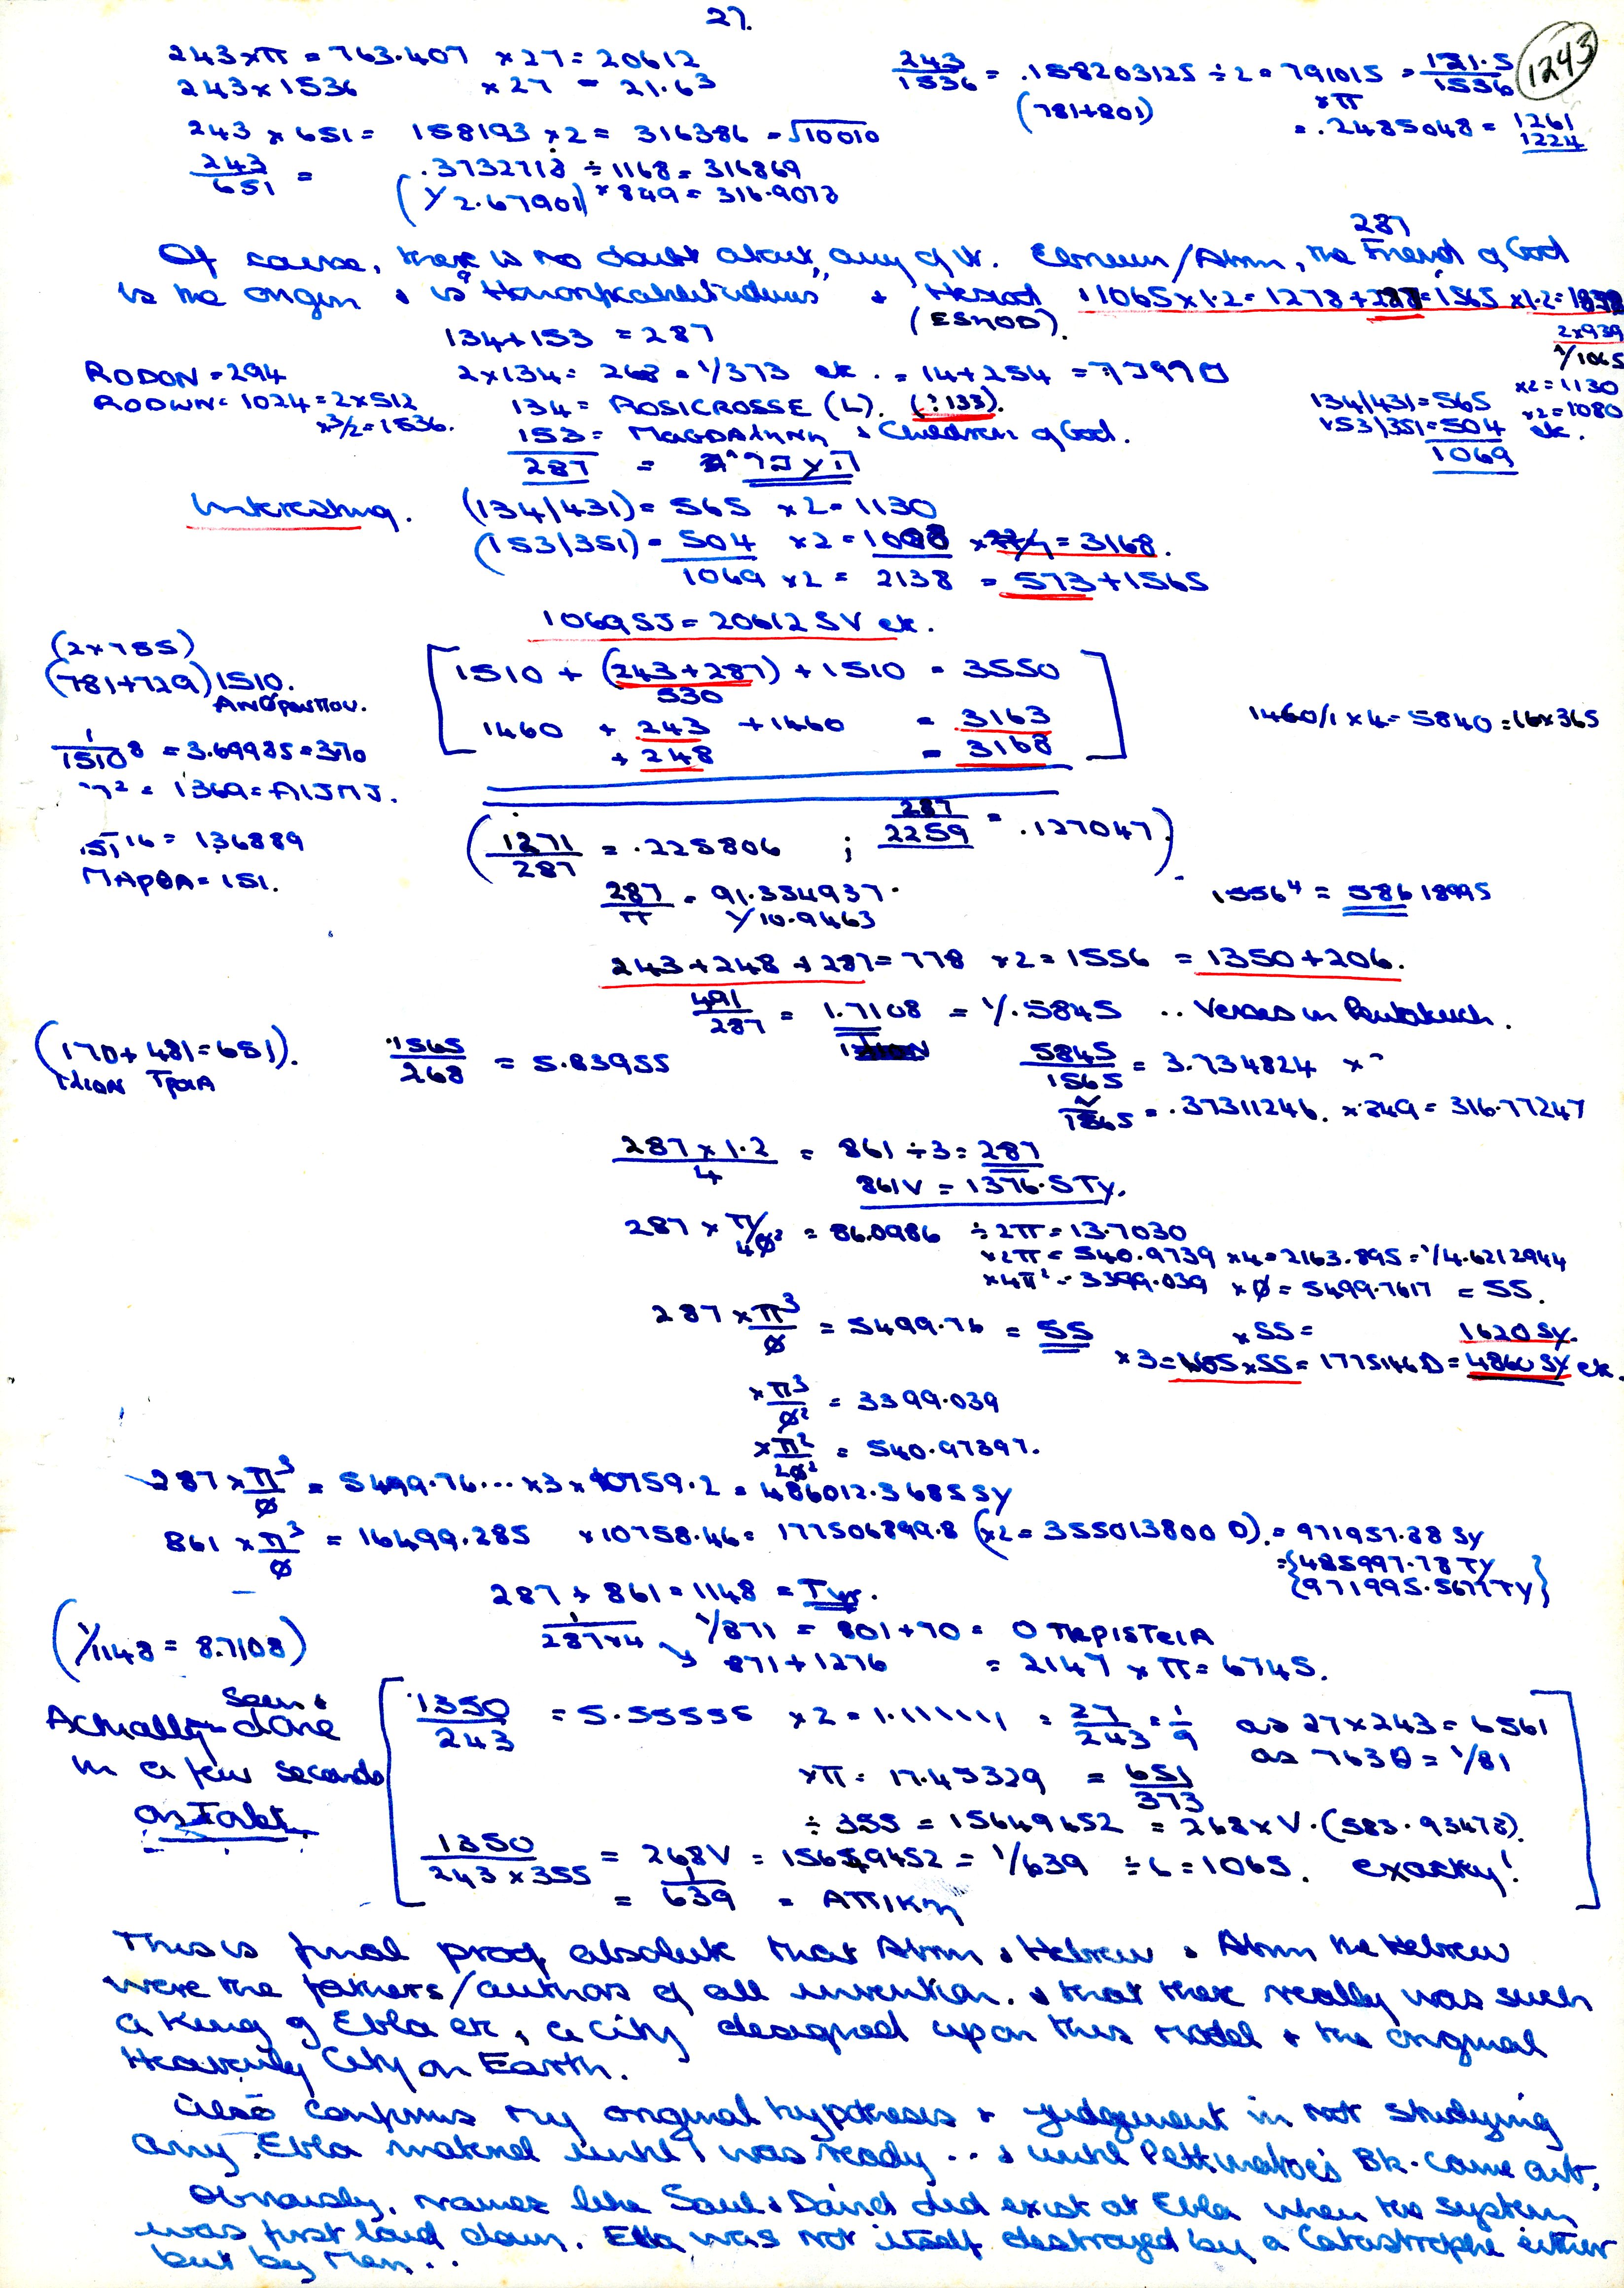 27.
1243
243×π = 763.407 ×27 = 20612
243×1536 ×27 = 21.63
243/1536 = .158203125 ÷2 = 791015 = 121.5/1536
(781+801)
×π
= .2485048 = 1261
1224
243 × 651 = 158193 ×2 = 316386 = √10010
243/651 = .3732718 ÷ 1168 = 316869
(1/2.67901) × 849 = 316.9078
287
Of course, there is no doubt about any of it. /Abrm, the Friend of God
is the origin & is & Hesiod 11065×1.2 = 1278 + 287 = 1565 ×1.2 =
(ESHOD).
2×939
1/1065
134+153 = 287
RODON = 294
2×134 = 268 = 1/373 etc. = 14+254 =
×2 = 1130
RODWN = 1024 = 2×512
×3/2 = 1536.
134 = ROSICROSSE (L). (?133).
134/431) = 565
153/351 = 504 ×2=1080 etc.
1069
153 = ΜαGDAληνη & Children of God.
287 =
Interesting. (134/431) = 565 ×2 = 1130
(153/351) = 504 ×2 = = 3168.
1069 ×2 = 2138 = 573 + 1565
1069 SJ = 20612 SV etc.
(2×755)
(781+729) 1510.
ΑΝθρωπου.
1510 + (243+287) + 1510 = 3550
530
1460 + 243 + 1460 = 3163
+ 248 = 3168
1460/1 ×4 = 5840 = 16×365
1/1510⁸ = 3.69985 = 370
"² = 1369 = AIJMJ.
.151¹⁶ = 136889
ΜΑρθΑ = 151.
(1271/287 = .225806 ; 287/2259 = .127047).
287/π = 91.354937.
1/10.9463
1556⁴ = 58618995
243+248+287 = 778 ×2 = 1556 = 1350+206.
491/287 = 1.7108 = 1/.5845 .. Verses in Pentateuch.
(170 + 481 = 651).
ΙλιοΝ ΤροιΑ
1565/268 = 5.83955
5845/1565 = 3.734824 ×
= .37311246. ×849 = 316.77247
287 × 1.2/4 = 861 ÷3 = 287
861V = 1376.5 Ty.
287 × π/4Ø² = 86.0986 ÷2π = 13.7030
×2π = 540.9739 ×4 = 2163.895 = 1/4.6212944
×4π² = 3399.039 ×Ø = 5499.7617 = 55.
287 × π³/Ø = 5499.76 = 55
×55 = 1620 Sy.
×3 = 165×55 = 1775146 D = 4860 Sy etc.
×π³/Ø² = 3399.039
×π²/2Ø² = 540.97397.
287 × π³/Ø = 5499.76... ×3 × 10759.2 = 486012.3685 Sy
861 × π³/Ø = 16499.285 ×10758.46 = 177506899.8 (×2 = 355013800 D). = 971957.88 Sy
= {485997.78 Ty
{971995.5677 Ty}
287 + 861 = 1148 = Tyr.
1/287×4 1/871 = 801+70 = Ο ΠεριστειΑ
(1/1148 = 8.7108)
871+1276 = 2147 × π = 6745.
Actually seen & done
in a few seconds
1350/243 = 5.55555 ×2 = 1.1111111 = 27/243 = 1/9 as 27×243 = 6561
as 763θ = 1/81
×π = 17.45329 = 651/373
÷ 355 = 15649452 = 268×V. (583.93478).
1350/243×355 = 268V = 15649452 = 1/639 ÷6 = 1065. exactly!
= 1/639 = ΑΤΤΙΚη
This is final proof absolute that Abrm & Hebrew & Abrm the Hebrew
were the fathers/authors of all invention. & that there really was such
a King of Ebla etc, a city designed upon this model & the original
Heavenly City on Earth.
Also confirms my original hypothesis & judgement in not studying
any Ebla material until I was ready ... & until Pettinatoe's Bk. came out.
Obviously, names like Saul & David did exist at Ebla when the system
was first laid down. Ebla was not itself destroyed by a Catastrophe either
but by Men...